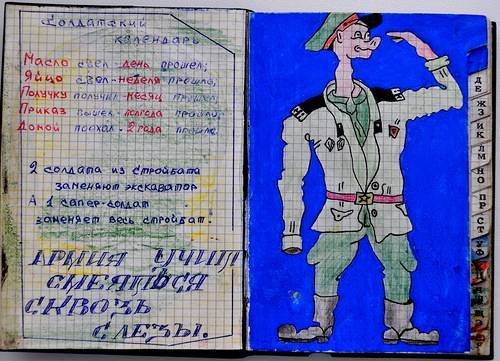 Солдатский
календарь
Масло съел - день прошел;
Яйцо съел - неделя прошла,
Получку получил - месяц прошел,
Приказ вышел - полгода прошло,
Домой поехал - 2 года прошло.
2 солдата из стройбата
заменяют экскаватор
А 1 сапер-солдат
заменяет весь стройбат.
АРМИЯ УЧИТ
СМЕЯТЬСЯ
СКВОЗЬ
СЛЕЗЫ.
Д Е
Ж З
И К
Л М
Н О
П Р
С Т
У Ф